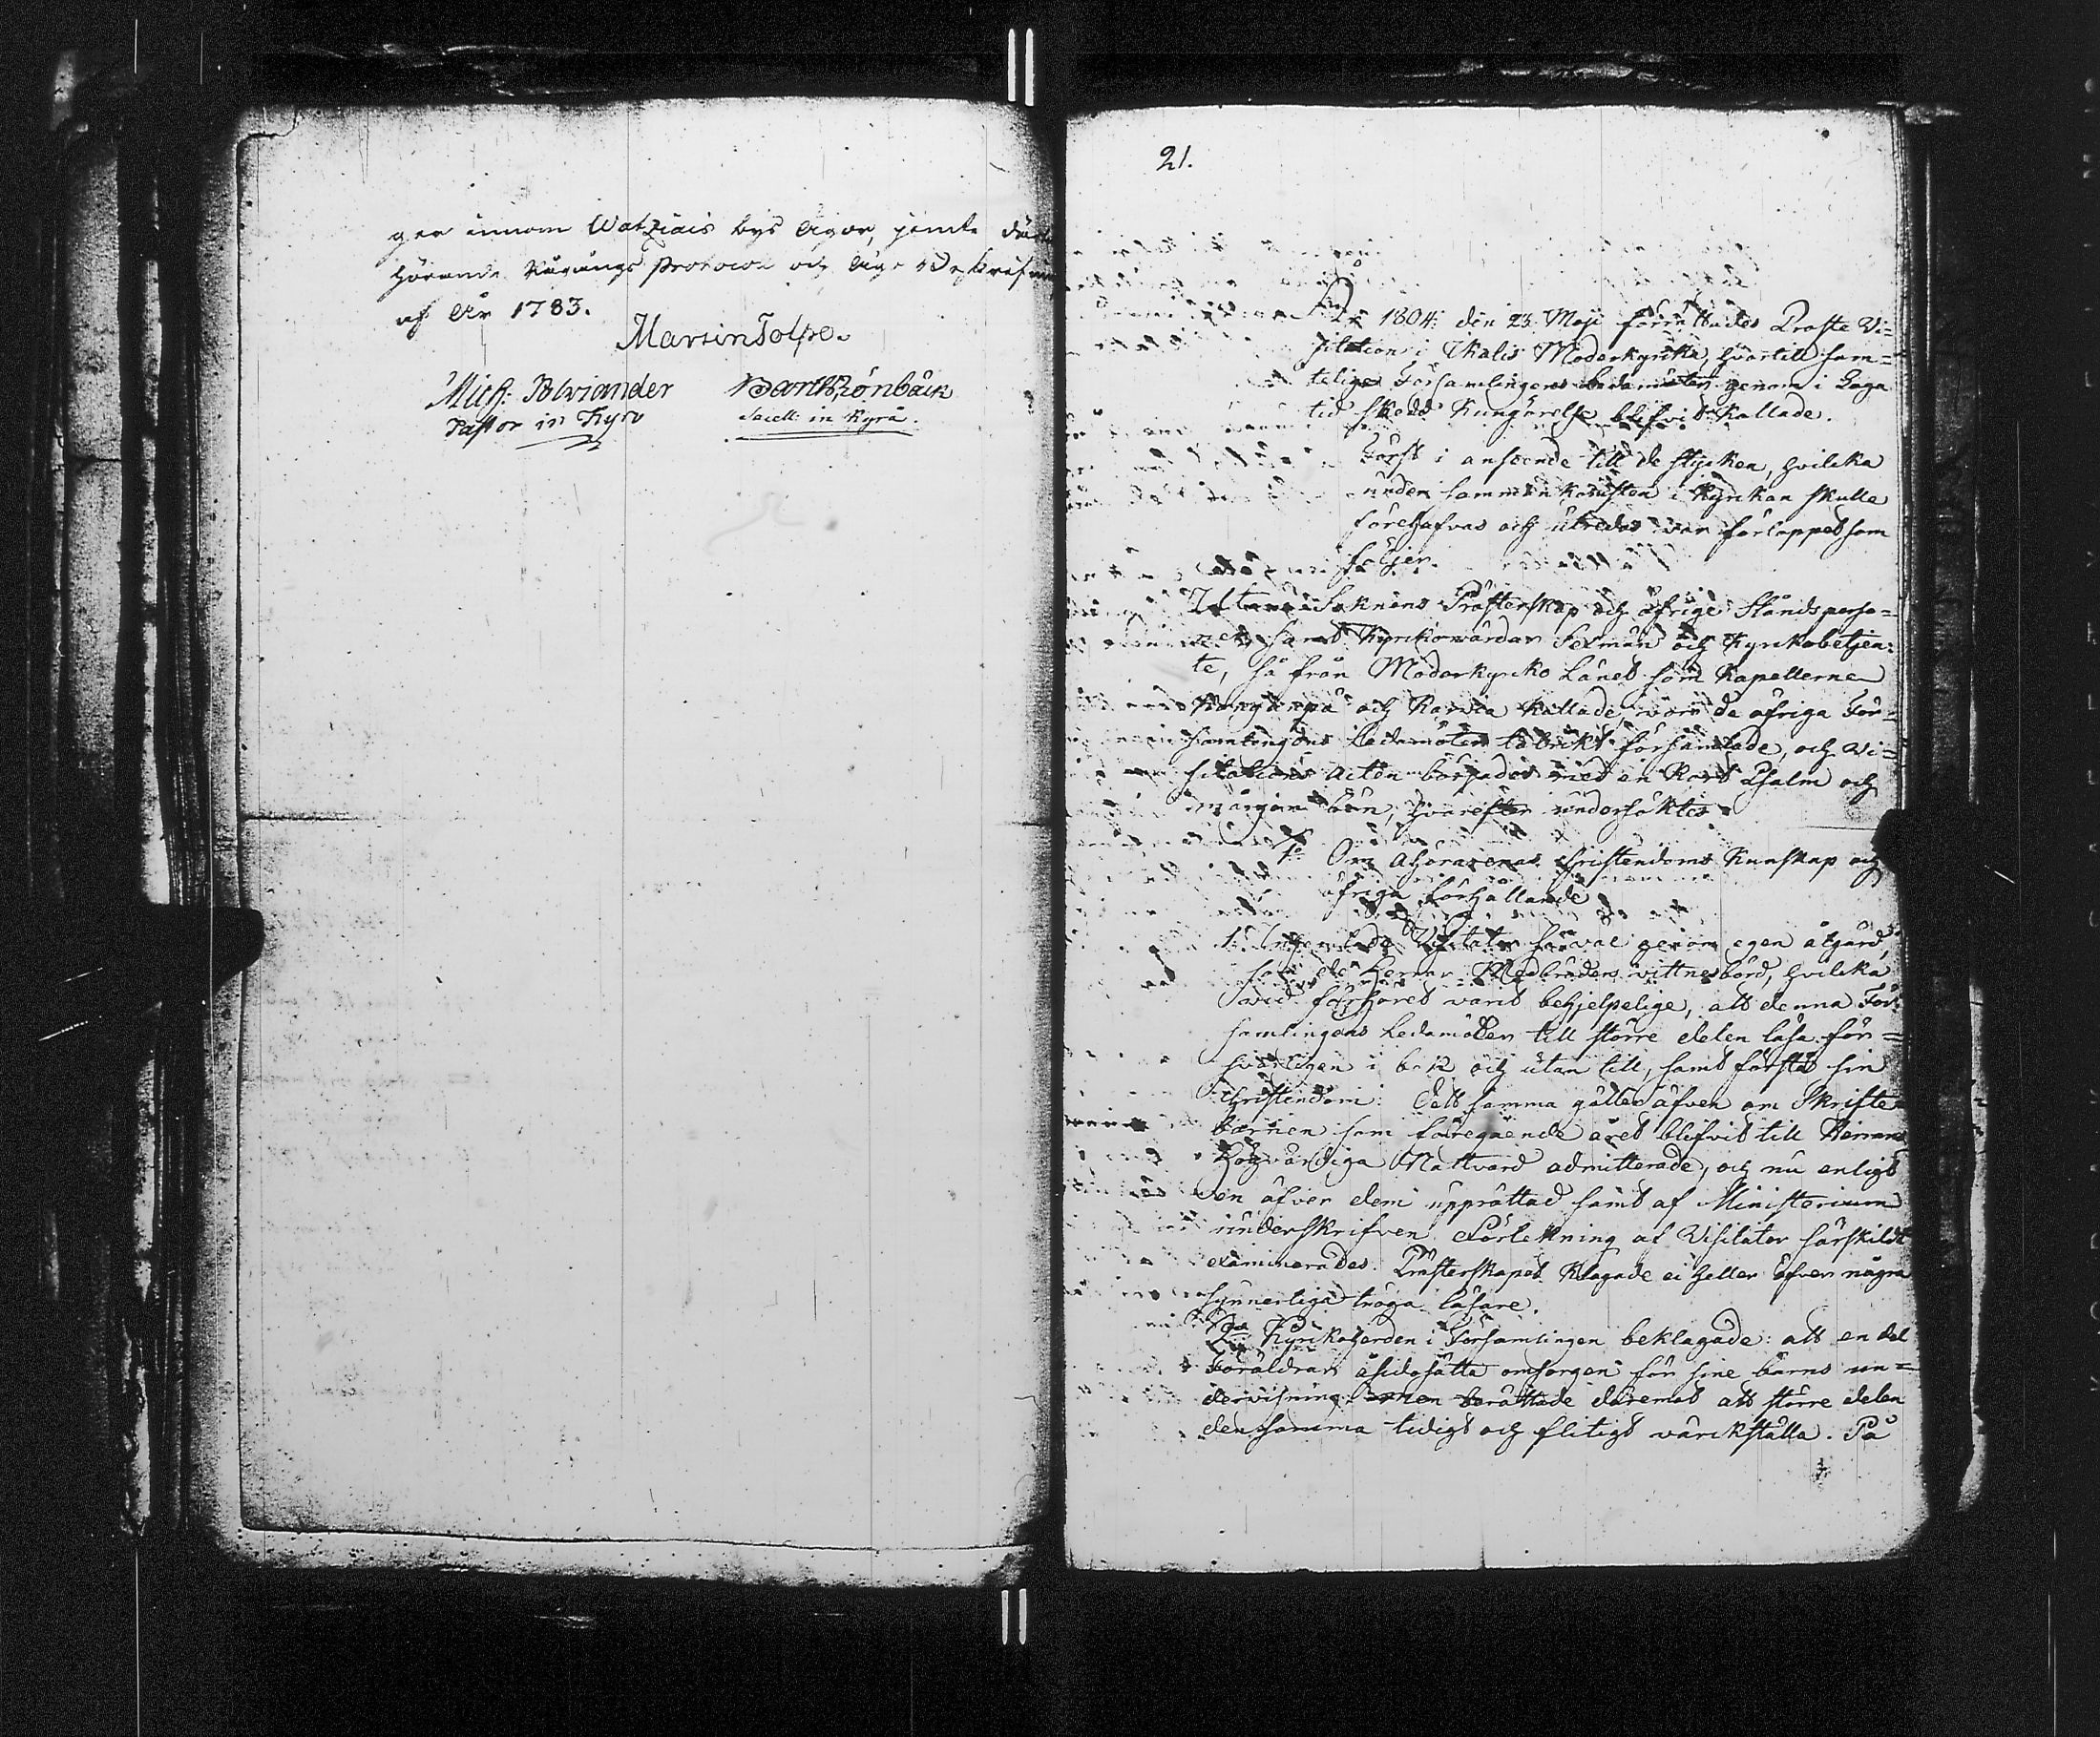 ger innom Watziais bys Ägor, jämte där
hörande Rågångs Protocol och Ägo Beskrifn
af År 1783.
Martin Tolpo.
Mich: Polviander
Pastor in Kyro
Barth Rönbäck
Sacell: in Kyrå.
21.
År 1804. den 23 Maji förrättades Proste Vi=
sitation i Ikalis Moderkyrka, hvartill sam=
telige Församlingens Ledamöter genom i Laga
tid skedd Kungörelse blifvit kallade.
Först i anseende till de stycken, hvilcka
under sammankomsten i kyrckan skulle
förehafvas och utredas var förloppet som
följer.
Soknens Prästerskap och öfrige Ståndsperso=
ner samt Kyrckowärdar Sexmän och Kyrckobetjen=
te, så från Moderkyrcko Länet som Kapellerne
Kangånpä och Karvia kallade, voro de öfriga För=
samlingens Ledamöter talrikt församlade, och Vi=
sitations Acten börjades med en kort Psalm och
morgon bön, hvarefter undersöktes
1o Om Åhörarenas Christendoms Kunskap och
öfriga förhållande
1. Inhemtade Visitator såväl genom egen åtgärd,
som de Herrar Medbröders vittnesbörd, hvilcka
vid förhöret varit behjelpelige, att denna För=
samlingens Ledamöter till större delen läsa för=
svarligen i bok och utan till, samt förstå sin
Christendom: Dett samma gäller äfven om Skrifte=
barnen som föregående året blifvit till Herrans
Högvärdiga Nattvard admitterade, och nu enligt
en öfver dem upprättad samt af Ministerium
underskrifven Förtekning af Visitator särskildt
examinerades. Prästerskapet klagade ei heller öfver några
synnerliga tröga läsare.
2o Kyrkoherden i Församlingen beklagade: att en del
Föräldrar åsidosätta omsorgen för sine barns un=
dervisning: men berättade däremot att större delen
densamma tidigt och flitigt värckställa. På